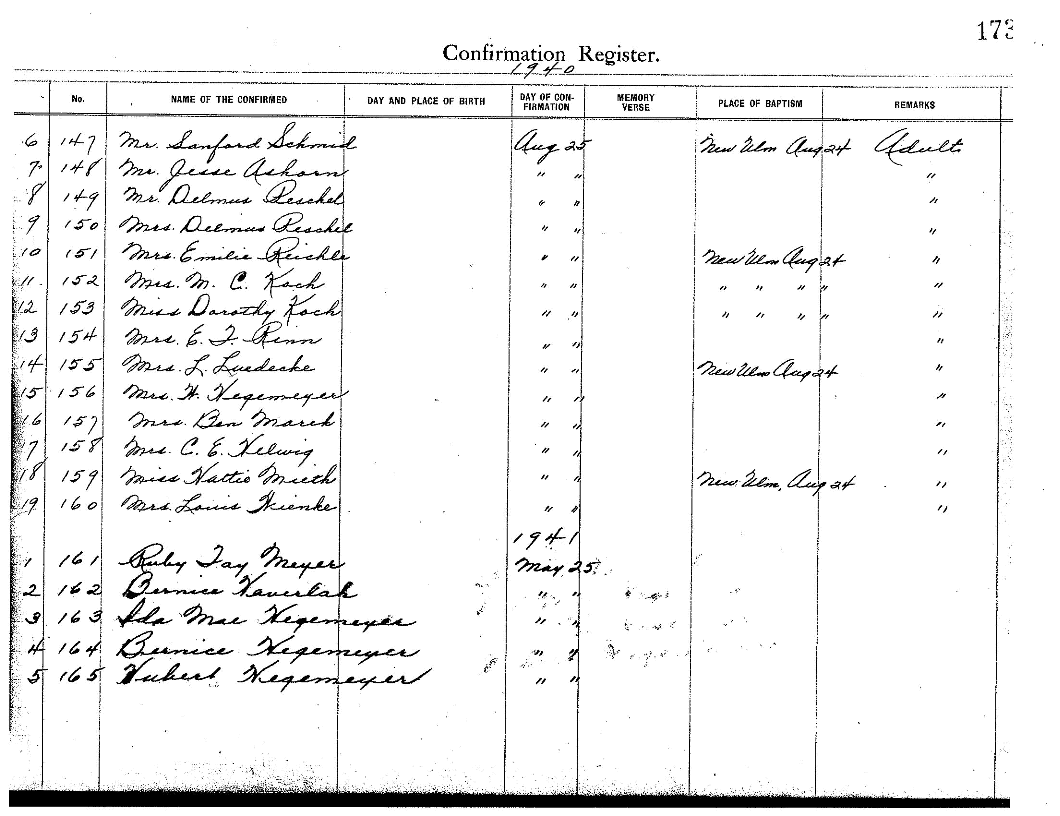 173
Confirmation Register.
1940
No. NAME OF THE CONFIRMED DAY AND PLACE OF BIRTH DAY OF CON-FIRMATION MEMORY VERSE PLACE OF BAPTISM REMARKS
6 147 Mr. Sanford Schmid Aug 25 New Ulm Aug 24 Adult
7 148 Mr. Jesse Ashorn " " "
8 149 Mr. Delmus Peschel " " "
9 150 Mrs. Delmus Peschel " " "
10 151 Mrs. Emilie Reichle " " New Ulm Aug 24 "
11. 152 Mrs. M. C. Koch " " " " " " "
12 153 Miss Dorothy Koch " " " " " " "
13 154 Mrs. E. F. Rinn " " "
14 155 Mrs. L. Luedecke " " New Ulm Aug 24 "
15 156 Mrs. H. Hegemeyer " " "
16 157 Mrs. Ben Marek " " "
17 158 Mrs. C. E. Helwig " " "
18 159 Miss Hattie Mieth " " New Ulm, Aug 24 "
19 160 Mrs. Louis Wienke " " "
1941
1 161 Ruby Fay Meyer May 25
2 162 Bernice Haverlah " "
3 163 Ida Mae Hegemeyer " "
4 164 Bernice Hegemeyer " "
5 165 Hubert Hegemeyer " "